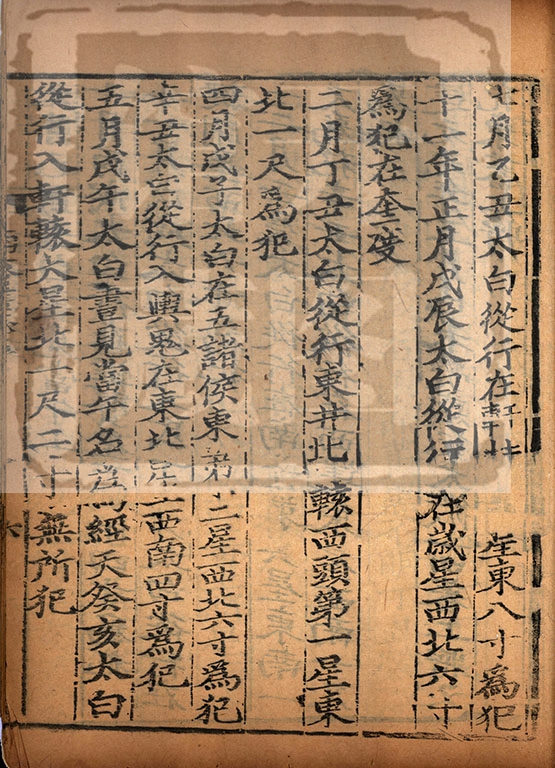 七月乙丑太白從行在軒轅大星東八寸爲犯
十一年正月戊辰太白從行在歲星西北六寸
爲犯在奎度
二月丁丑太白從行東井北轅西頭第一星東
北一尺爲犯
四月戊子太白在五諸侯東第二星西北六寸爲犯
辛丑太白從行入輿鬼在東北星西南四寸爲犯
五月戊午太白晝見當午名爲經天癸亥太白
從行入軒轅大星北一尺二寸無所犯